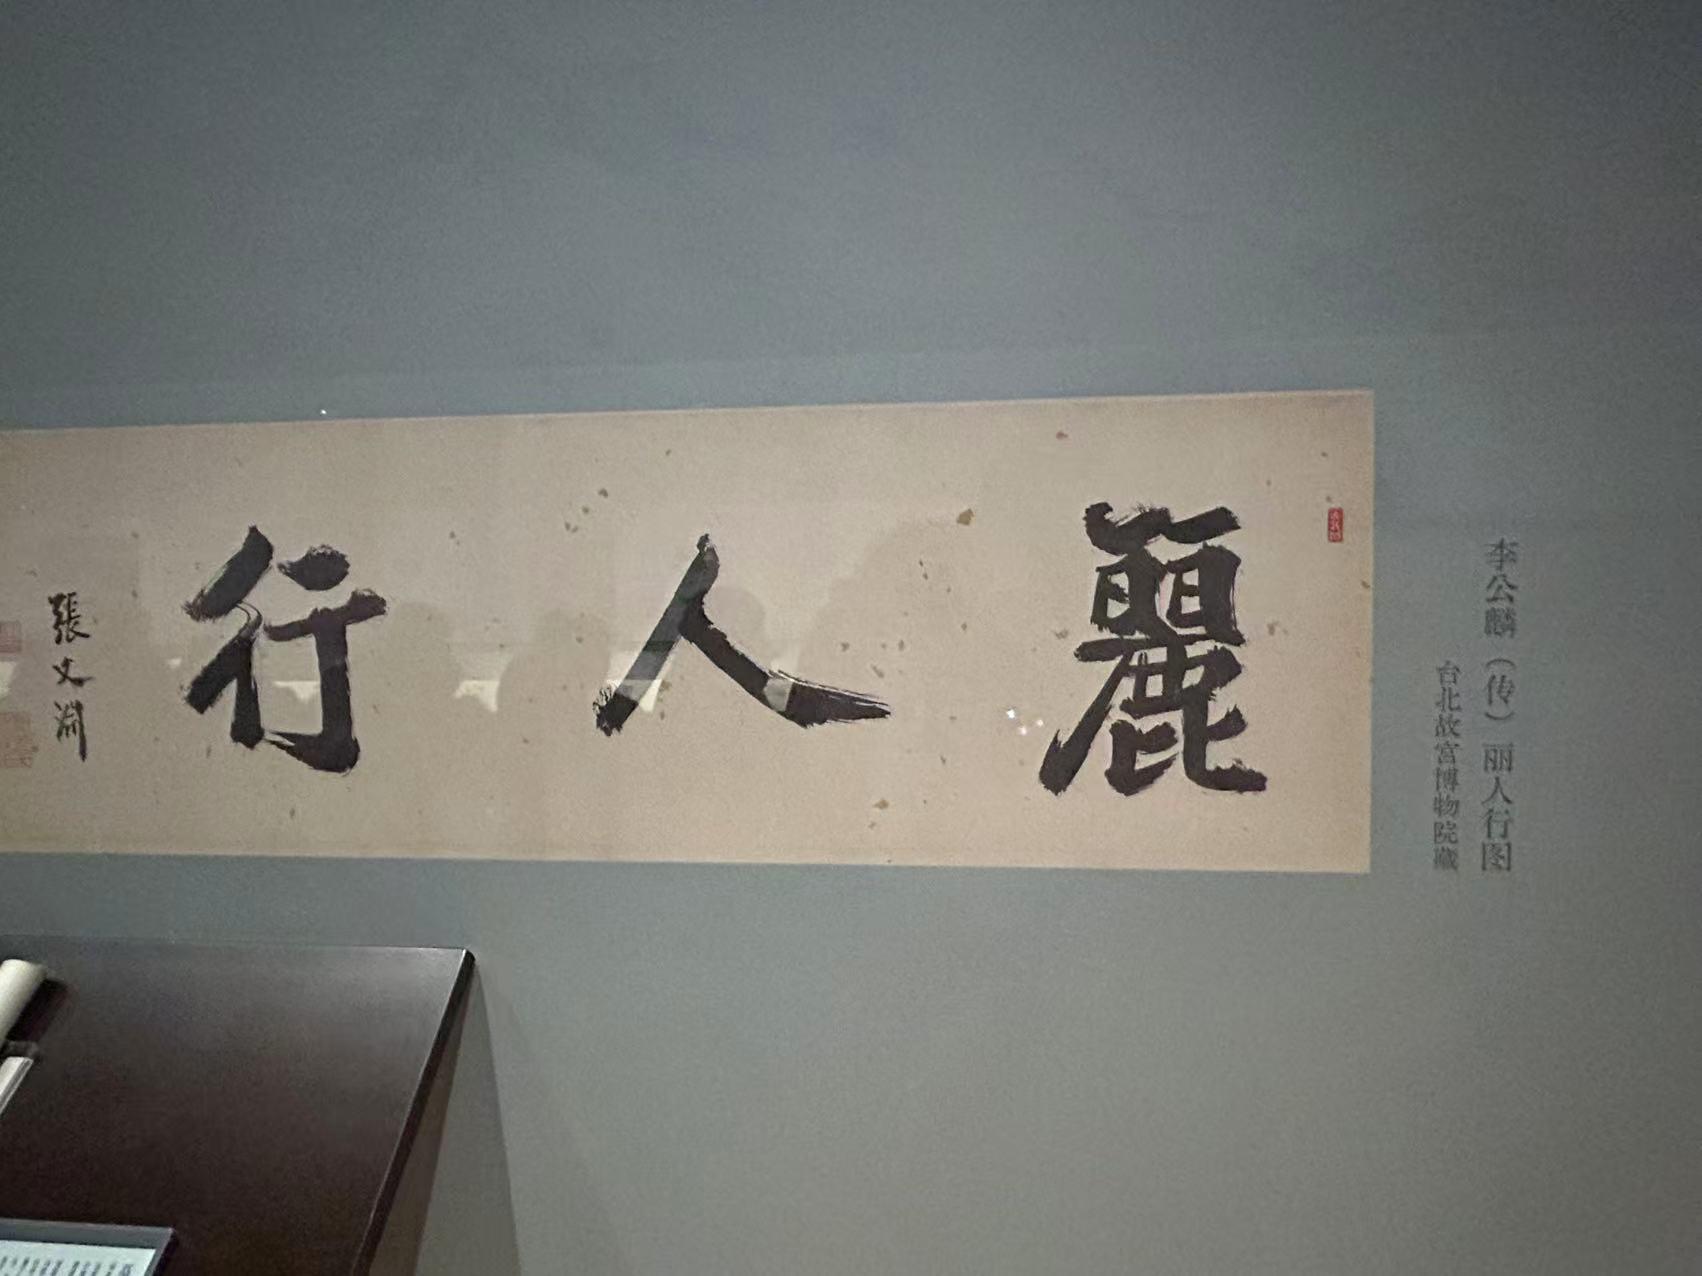 李公麟（传）丽人行图
台北故宫博物院藏
麗人行
張文淵